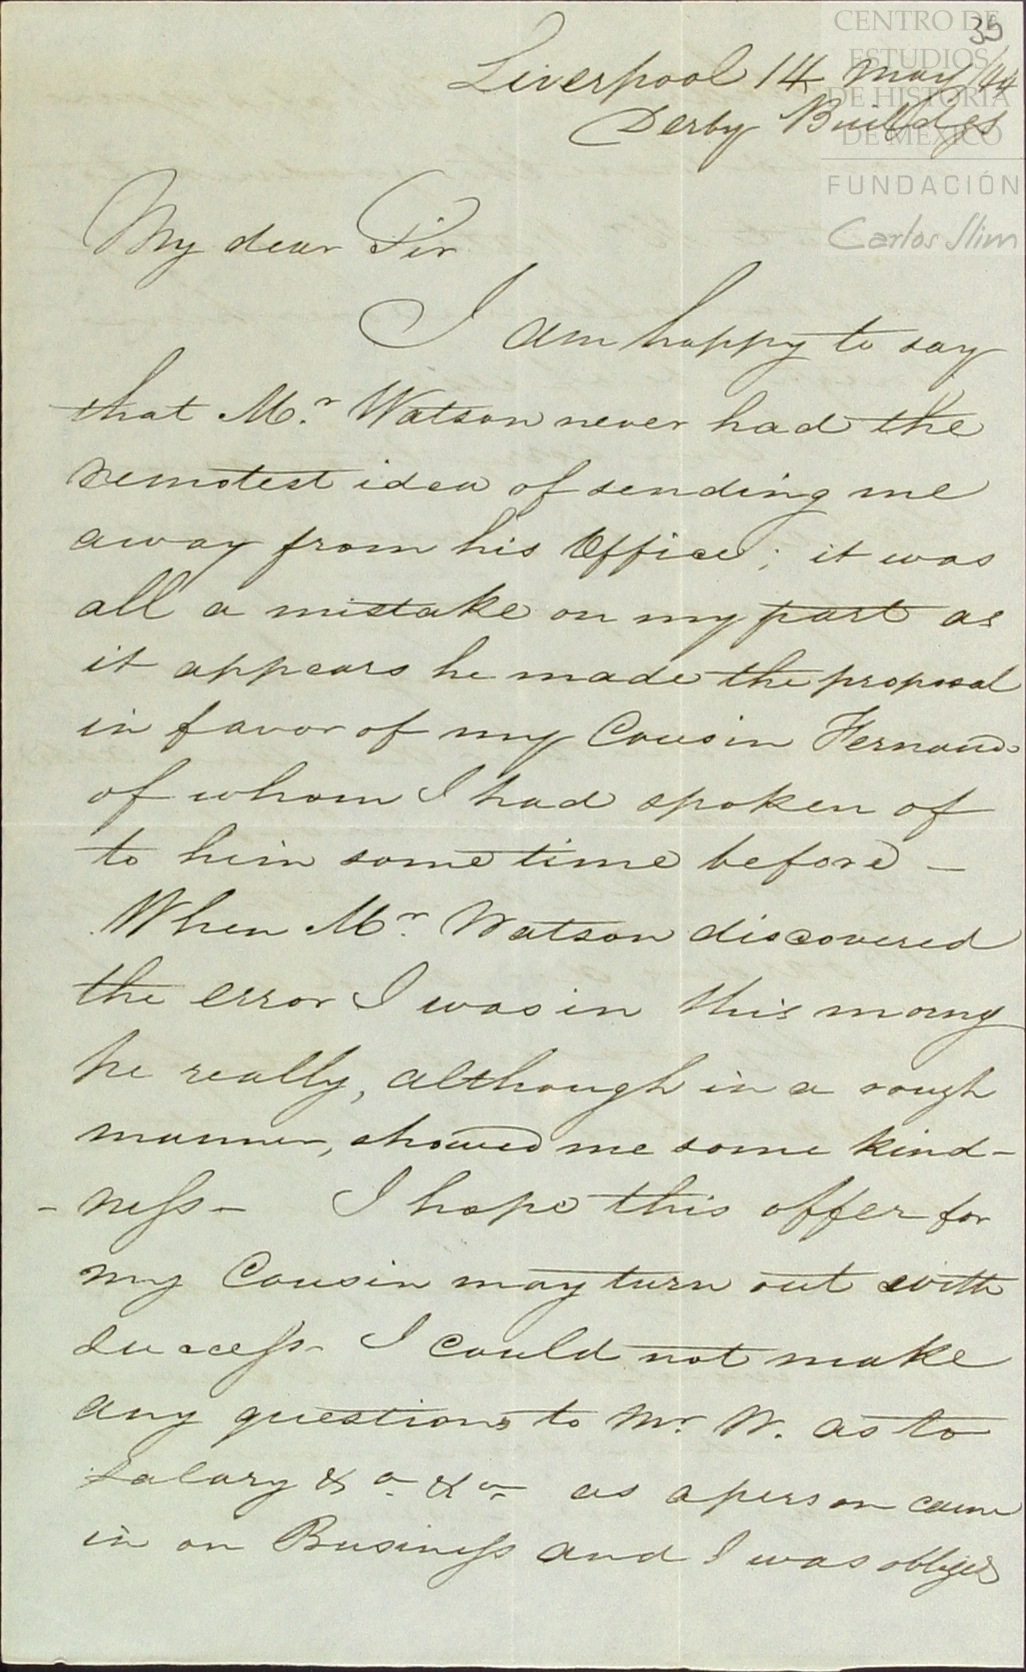 CENTRO DE
ESTUDIOS
DE HISTORIA
DE MEXICO
FUNDACIÓN
Carlos Slim
35
Liverpool 14 May /44
Derby Buildgs
My dear Sir
I am happy to say
that Mr. Watson never had the
remotest idea of sending me
away from his Office; it was
all a mistake on my part as
it appears he made the proposal
in favor of my Cousin Fernando
of whom I had spoken of
to him some time before –
When Mr. Watson discovered
the error I was in this morng
he really, although in a rough
manner, showed me some kind–
–ness – I hope this offer for
my Cousin may turn out with
success – I could not make
any questions to Mr. W. as to
Salary &a. &a. as a person came
in on Business and I was obliged